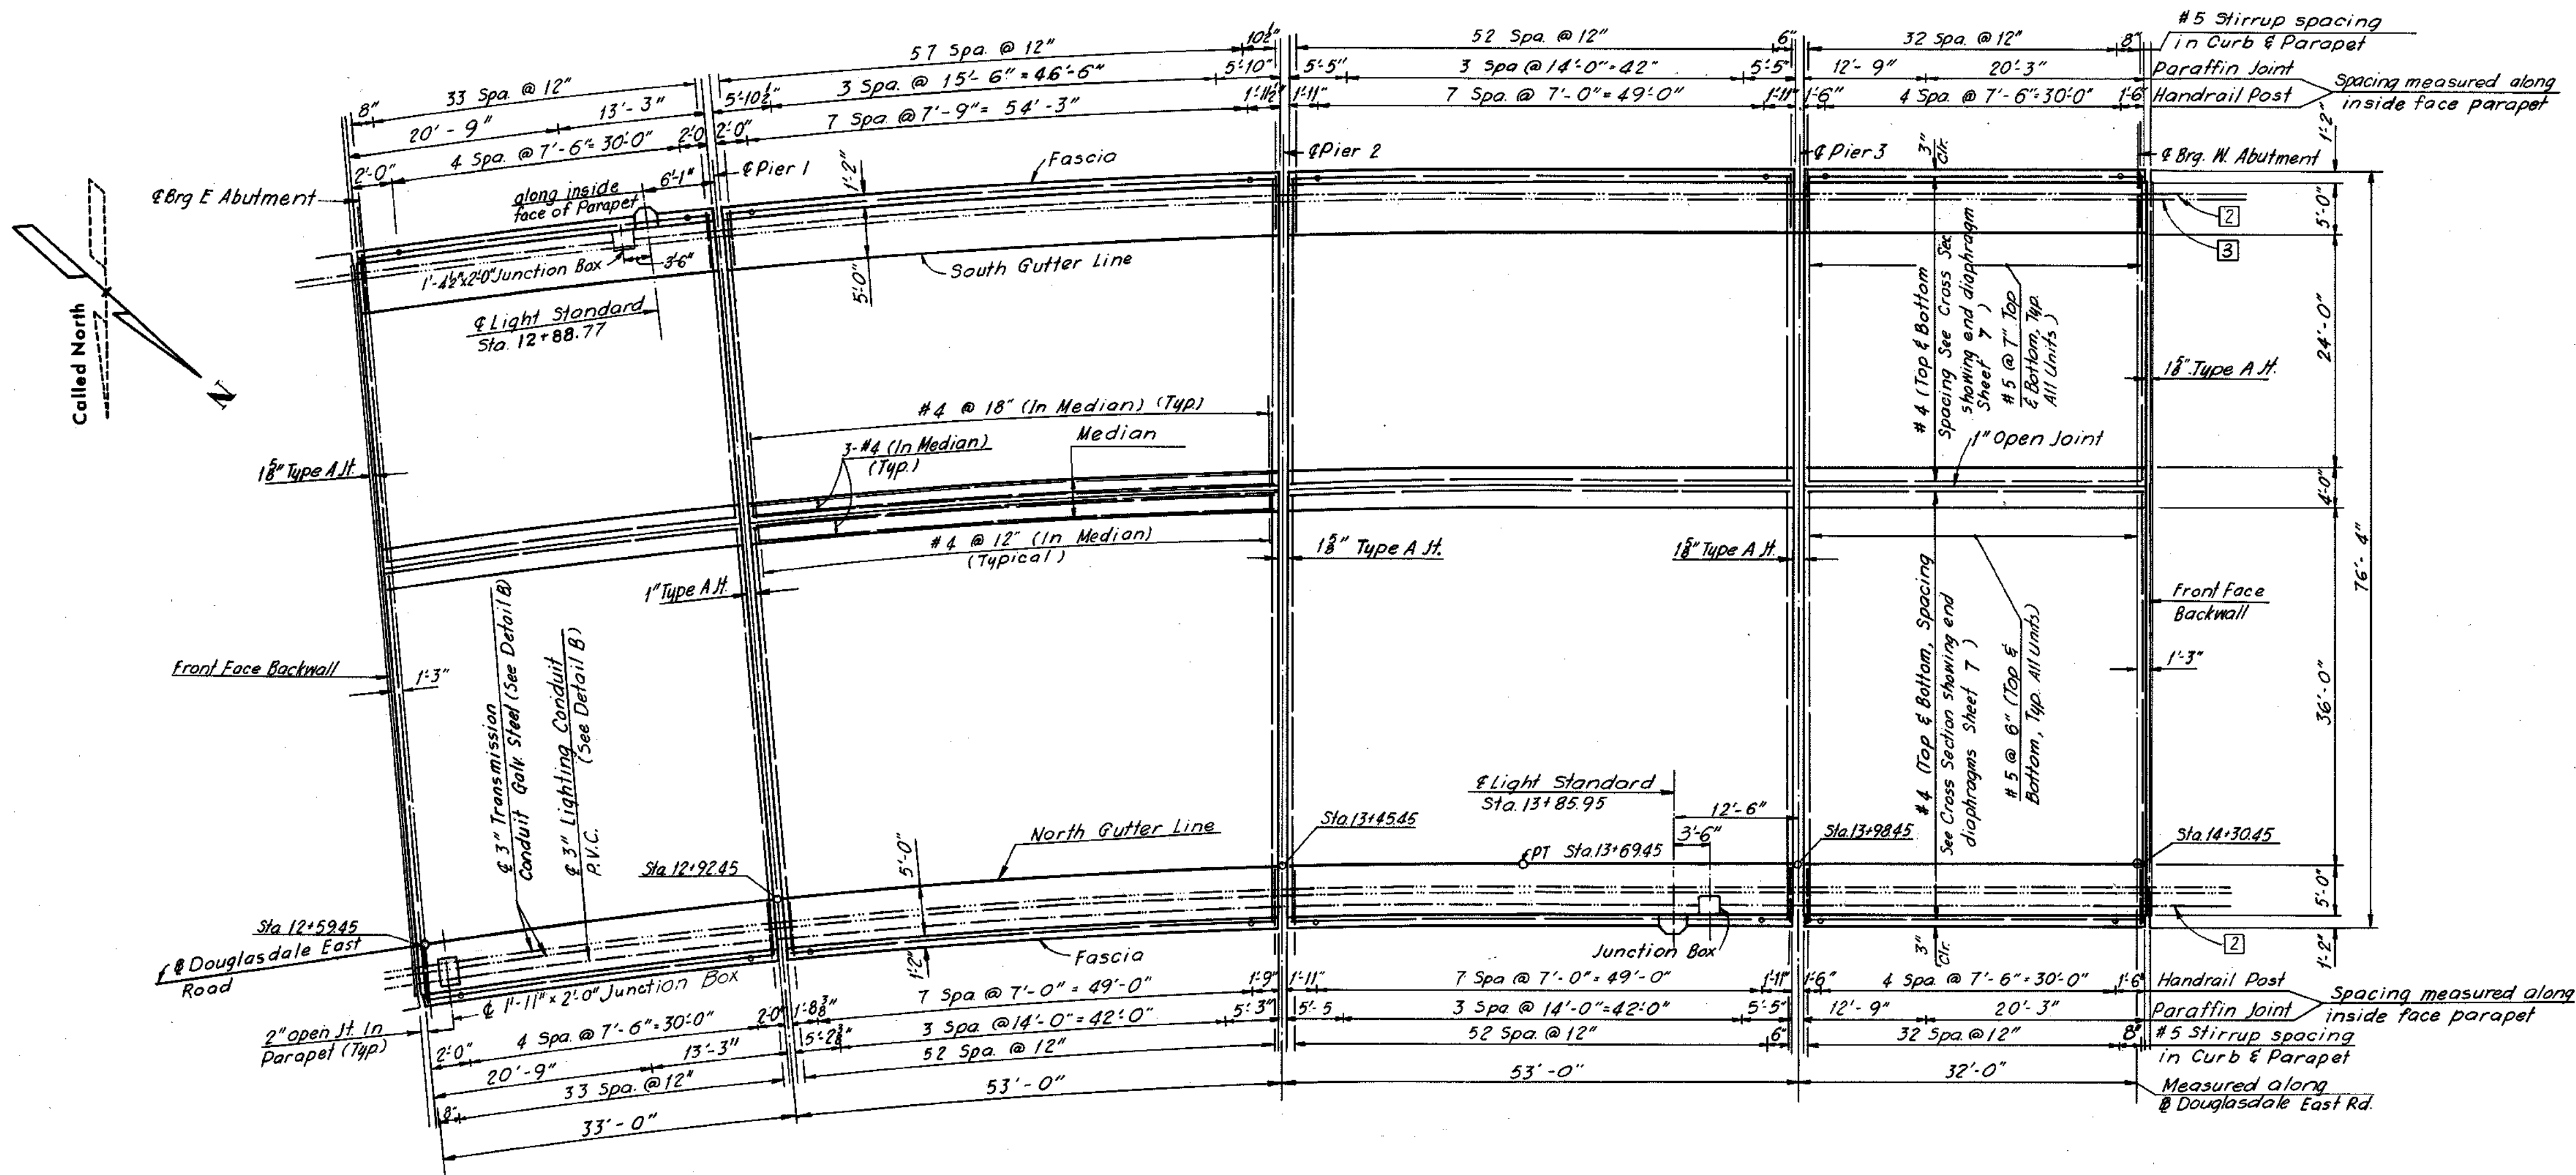 57 Spa. @ 12"
10½"
52 Spa. @ 12"
6"
32 Spa. @ 12"
8"
#5 Stirrup spacing
in Curb & Parapet
8"
33 Spa. @ 12"
5'-10½"
3 Spa @ 15'-6" = 46'-6"
5'-10"
5'-5"
3 Spa @ 14'-0" = 42"
5'-5"
12'-9"
20'-3"
Paraffin Joint
Spacing measured along
inside face parapet
20'-9"
13'-3"
2'-0"
7 Spa. @ 7'-9" = 54'-3"
1'-11½"
1'-11"
7 Spa. @ 7'-0" = 49'-0"
1'-11"
1'-6"
4 Spa. @ 7'-6" = 30'-0"
1'-6"
Handrail Post
2'-0"
4 Spa. @ 7'-6" = 30'-0"
2'-0
1'-2"
℄ Brg E Abutment
along inside
face of Parapet
6'-1"
℄ Pier 1
1'-2"
Fascia
℄ Pier 2
℄ Pier 3
3"
Clr.
℄ Brg. W. Abutment
5'-0"
2
3
1'-4½"x2'-0" Junction Box
3'-6"
5'-0"
South Gutter Line
℄ Light Standard
Sta. 12+88.77
Called North
N
#4 (Top & Bottom
Spacing See Cross Sec.
showing end diaphragm
Sheet 7 )
#5 @ 7" Top
& Bottom, Typ.
All Units )
24'-0"
1⅝" Type A Jt.
#4 @ 18" (In Median) (Typ.)
3-#4 (In Median)
(Typ.)
Median
1" Open Joint
1⅝" Type A Jt.
4'-0"
#4 @ 12" (In Median)
(Typical)
1" Type A Jt.
1⅝" Type A Jt.
1⅝" Type A Jt.
76'-4"
Front Face Backwall
1'-3"
℄ 3" Transmission
Conduit Galv. Steel (See Detail B)
℄ 3" Lighting Conduit
P.V.C. (See Detail B)
#4 (Top & Bottom, Spacing
See Cross Section showing end
diaphragms Sheet 7 )
#5 @ 6" (Top &
Bottom, Typ. All Units)
Front Face
Backwall
1'-3"
36'-0"
℄ Light Standard
Sta. 13+85.95
12'-6"
3'-6"
North Gutter Line
Sta. 13+45.45
PT Sta. 13+69.45
Sta. 13+98.45
Sta. 14+30.45
Sta. 12+92.45
5'-0"
5'-0"
Sta. 12+59.45
Douglasdale East
Road
℄ 1'-11" x 2'-0" Junction Box
1'-2"
Fascia
Junction Box
3"
Clr.
2
1'-2"
2" open Jt. In
Parapet (Typ.)
2'-0"
4 Spa. @ 7'-6" = 30'-0"
2'-0"
1'-8⅜"
7 Spa @ 7'-0" = 49'-0"
1'-9"
1'-11"
7 Spa @ 7'-0" = 49'-0"
1'-11"
1'-6"
4 Spa. @ 7'-6" = 30'-0"
1'-6"
Handrail Post
Spacing measured along
inside face parapet
20'-9"
13'-3"
5'-2⅜"
3 Spa. @ 14'-0" = 42'-0"
5'-3"
5'-5
3 Spa @ 14'-0" = 42'-0"
5'-5"
12'-9"
20'-3"
Paraffin Joint
8"
33 Spa. @ 12"
52 Spa. @ 12"
52 Spa. @ 12"
6"
32 Spa. @ 12"
8"
#5 Stirrup spacing
in Curb & Parapet
33'-0"
53'-0"
53'-0"
32'-0"
Measured along
Douglasdale East Rd.